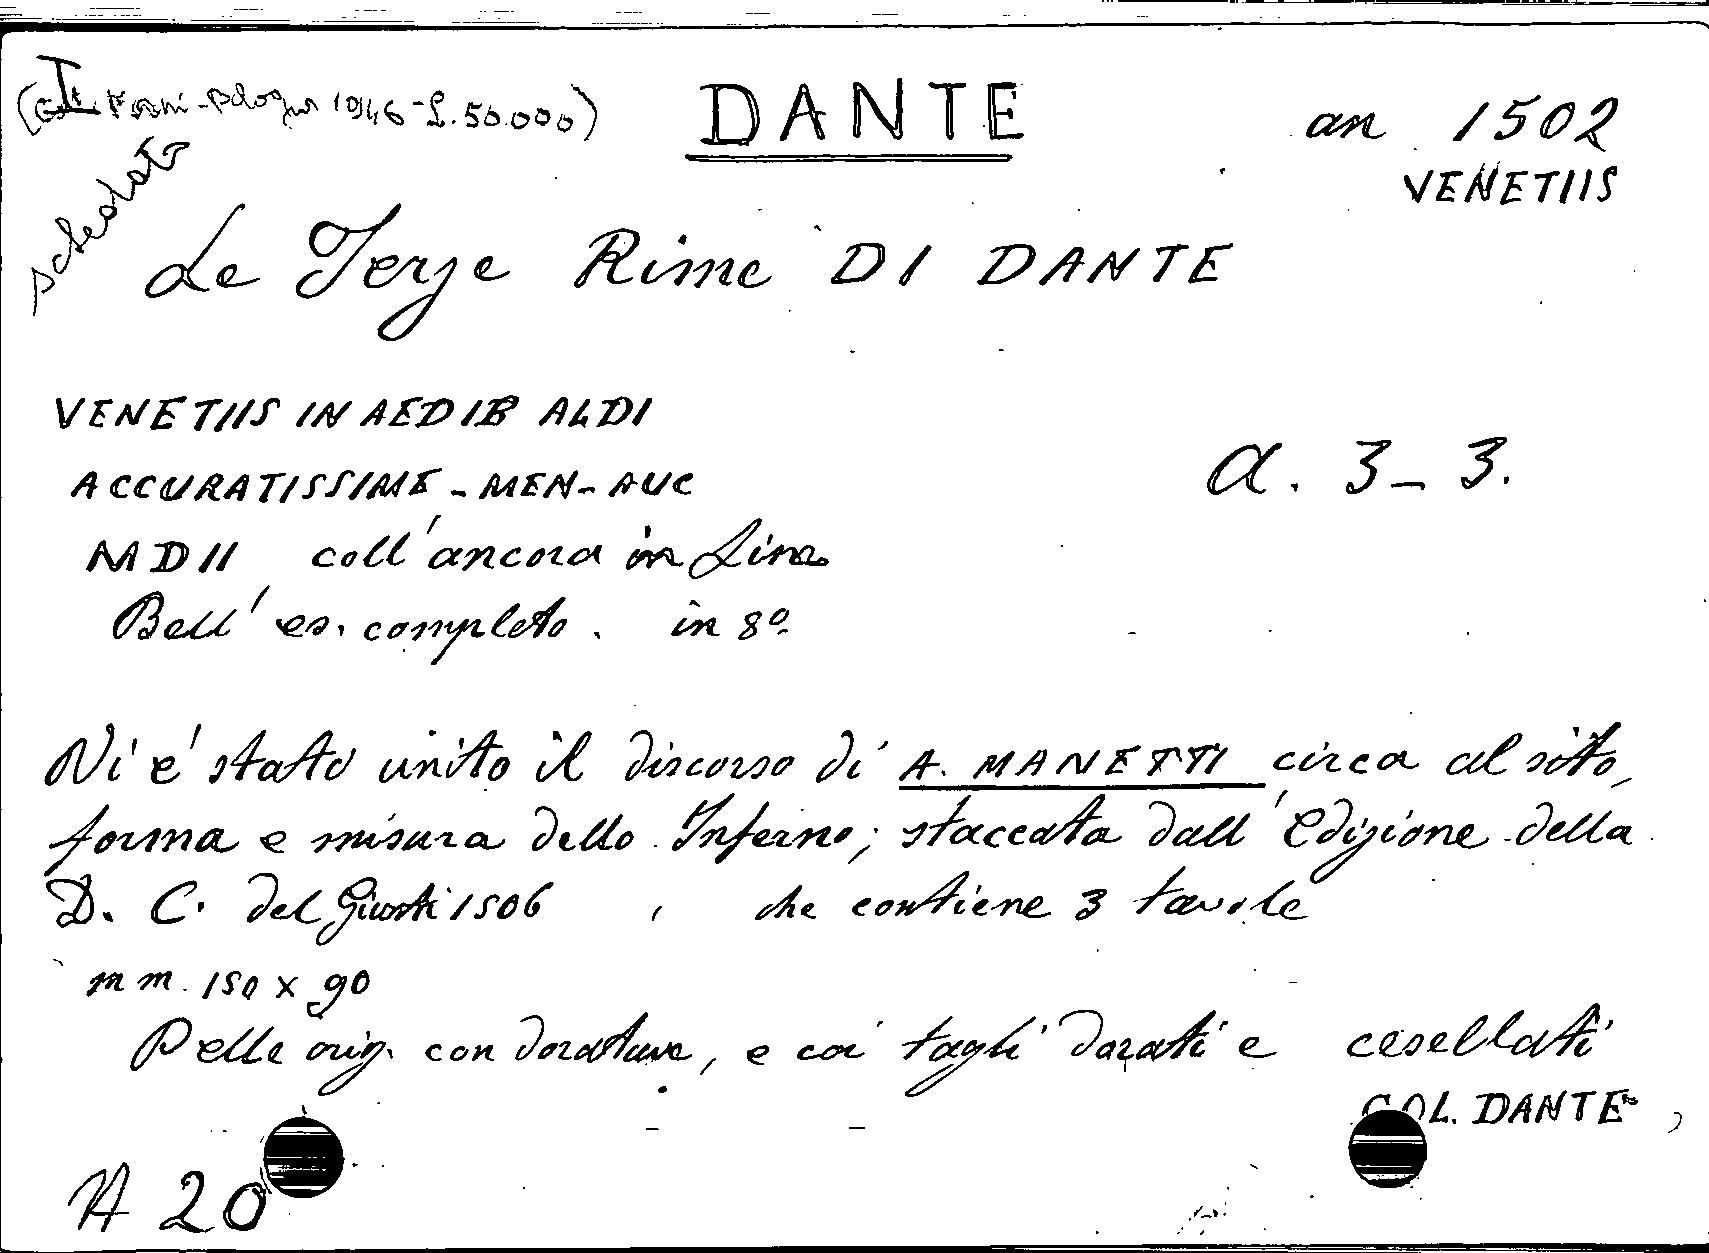 I
(Cat. Forni - Bologna 1946 - £. 50.000)
DANTE
an 1502
VENETIIS
schedato
Le Terze Rime DI DANTE
VENETIIS IN AEDIB ALDI
ACCURATISSIME - MEN - AUC
a. 3 - 3.
MDII coll'ancora in fine
Bell' es. completo. in 8º
Vi é stato unito il discorso di A. MANETTI circa al sito,
forma e misura dello Inferno; staccata dall' Edizione della
D. C. del Giunti 1506, che contiene 3 tavole
mm. 150 x 90
Pelle orig. con dorature, e coi tagli dorati e cesellati
COL. DANTE
A 20